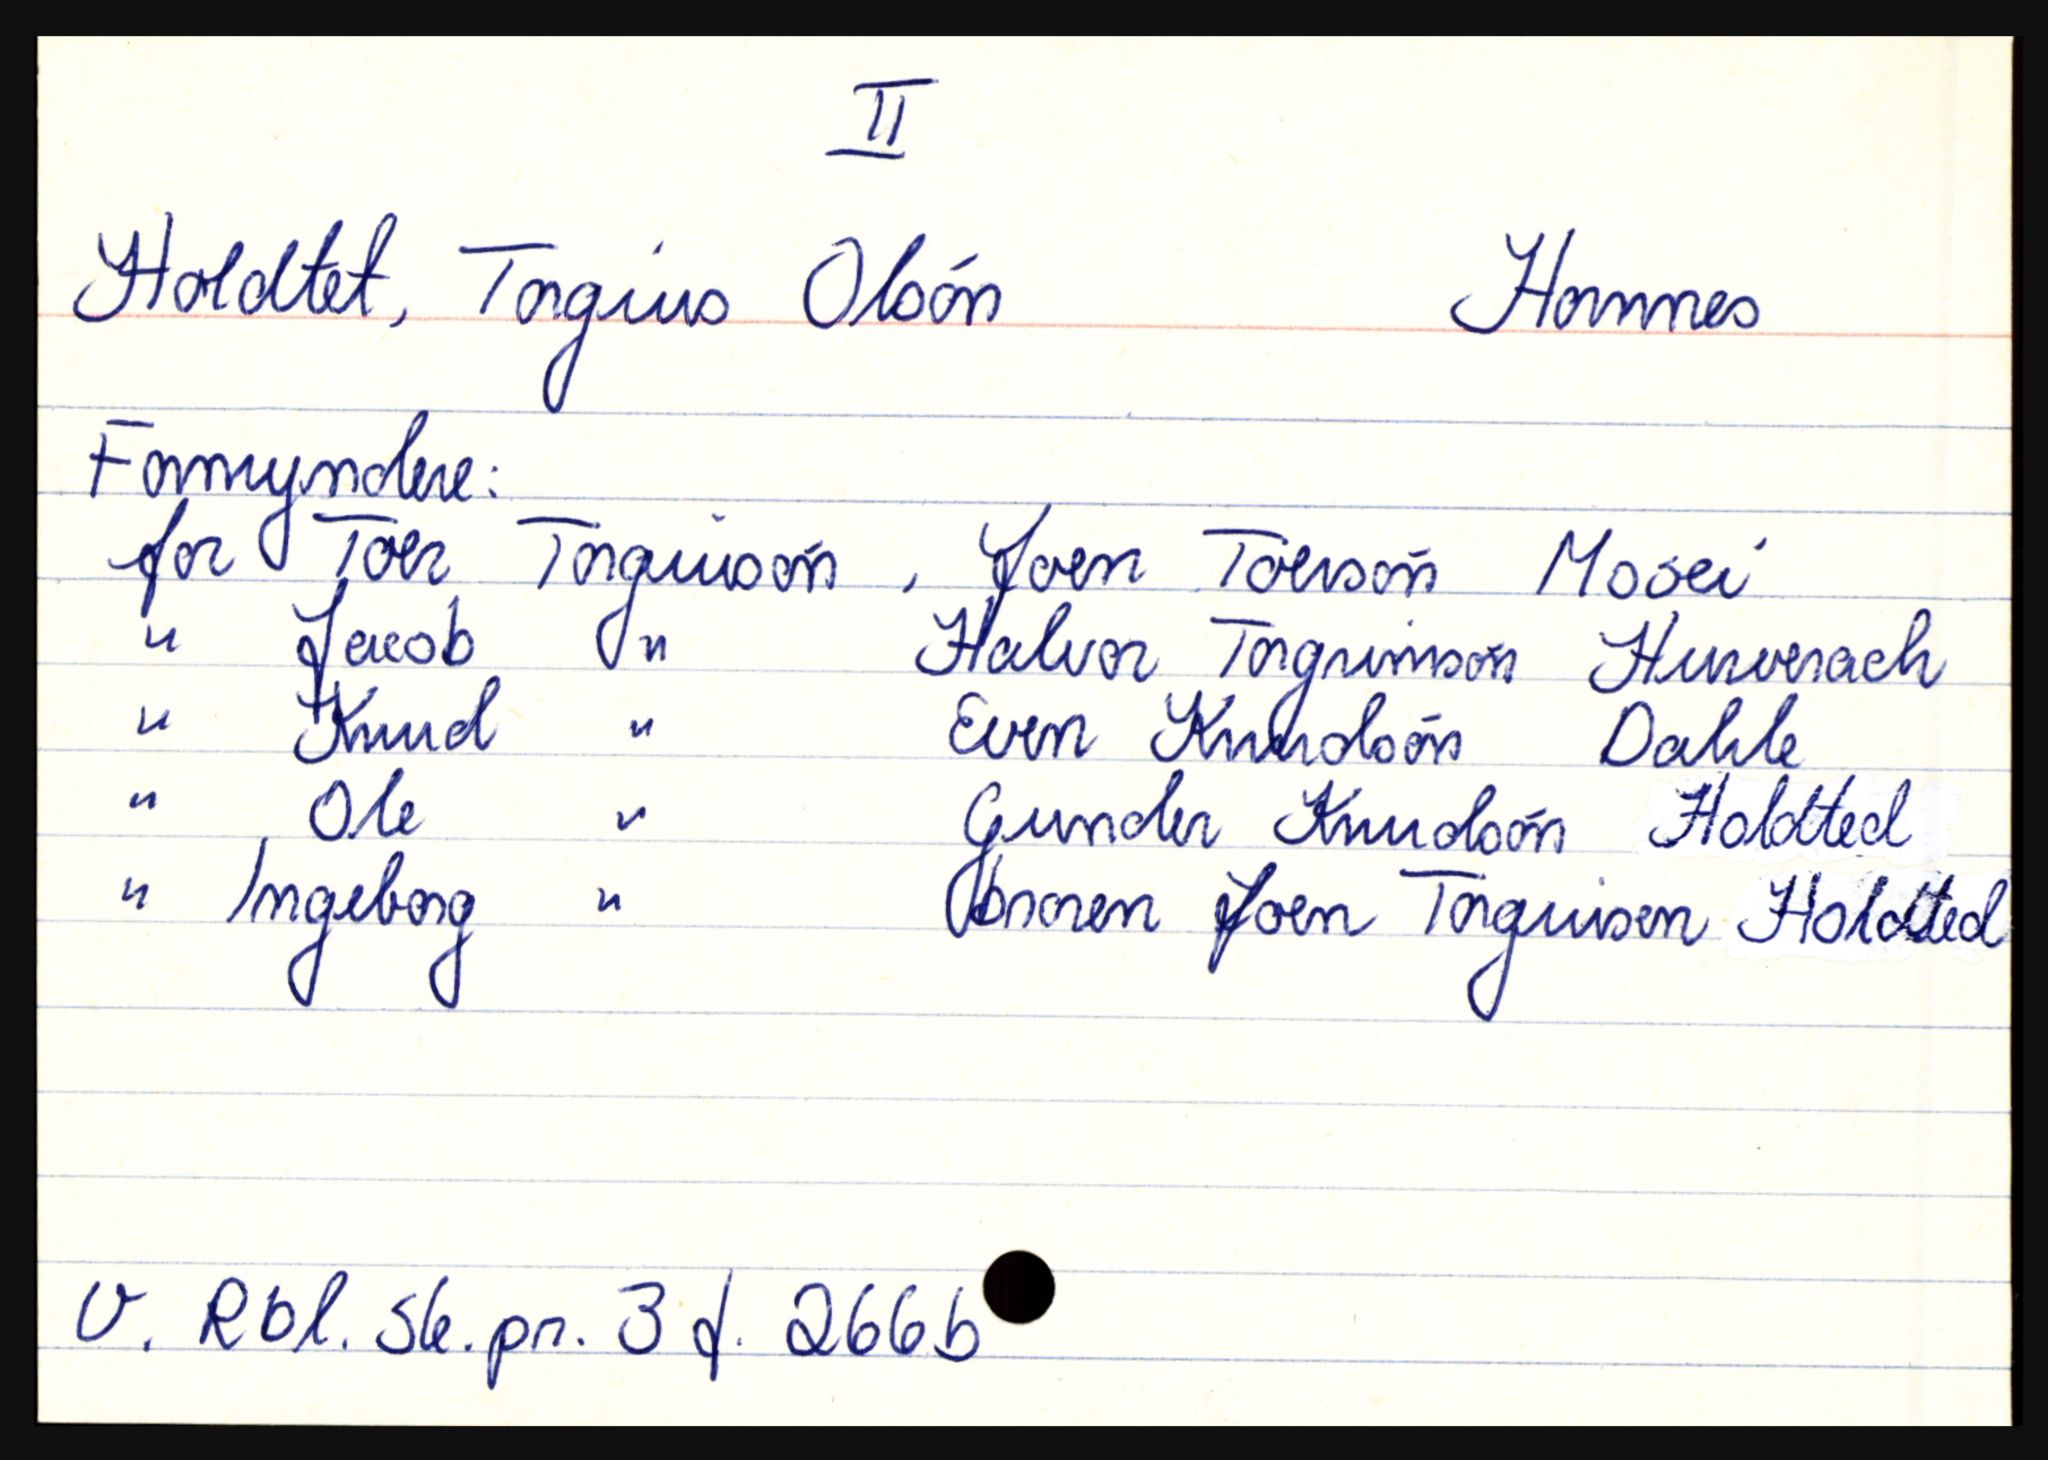 II
Holdtet, Torgius Olsón Hommes
Formyndere:
for Toer Torguisøn, Joen Toersøn Mosei
" Jacob " Halvor Torgrimsøn Hurverach
" Knud " Even Knudsøn Dahle
" Ole " Gunder Knudsøn Holdted
" Ingeborg " broren Joen Torguisen Holdted
V. Rbl. Sk. pr. 3 f. 266b